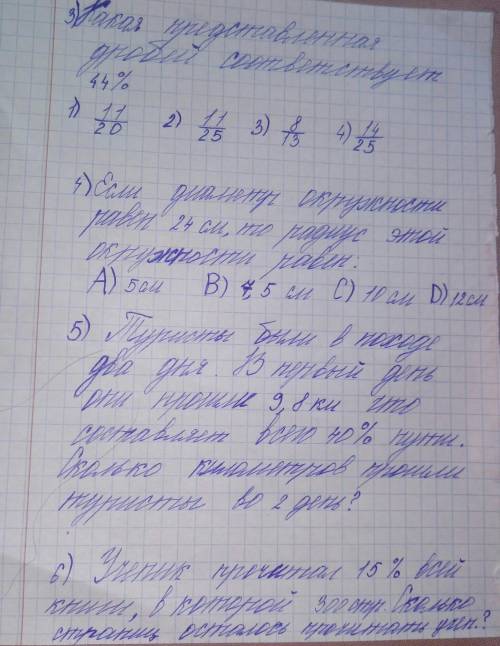 3) Какая представленная
дробей соответствует
44%
1) 11/20 2) 11/25 3) 8/13 4) 14/25
4) Если диаметр окружности
равен 24 см, то радиус этой
окружности равен:
A) 5 см B) 7,5 см C) 10 см D) 12 см
5) Туристы были в походе
два дня. В первый день
они прошли 9,8 км что
составляет всего 40% пути.
Сколько километров прошли
туристы во 2 день?
6) Ученик прочитал 15% всей
книги, в которой 300 стр. Сколько
страниц осталось прочитать учен.?